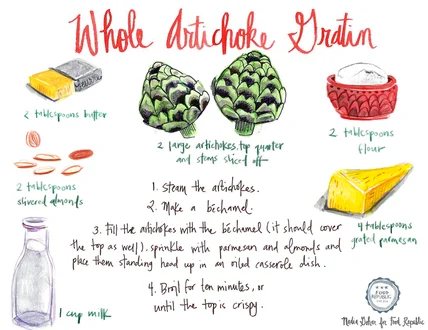 Whole Artichoke Gratin
2 tablespoons butter
2 large artichokes, top quarter
and stems sliced off
2 tablespoons
flour
2 tablespoons
slivered almonds
1. Steam the artichokes.
2. Make a béchamel.
3. Fill the artichokes with the béchamel (it should cover
the top as well). sprinkle with parmesan and almonds and
place them standing head up in an oiled casserole dish.
4. Broil for ten minutes, or
until the top is crispy.
4 tablespoons
grated parmesan
1 cup milk
FOOD
REPUBLIC
for Food Republic